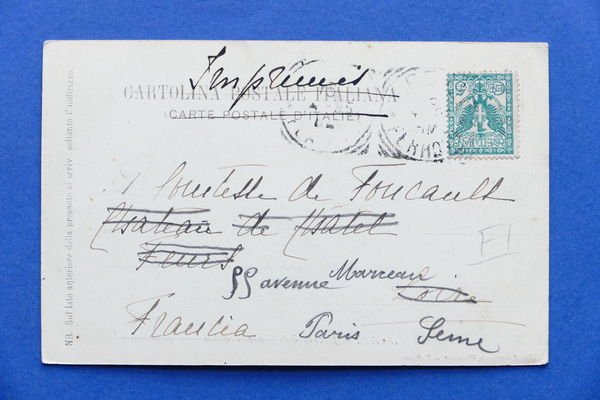 Imprimés
CARTOLINA POSTALE ITALIANA
(CARTE POSTALE D'ITALIE)
Comtesse de Foucault
Chateau de Chatel
Feurs
55 avenue Marceau
Loire
Francia Paris Seine
NB. Sul lato anteriore della presente si scriv. soltanto l'indirizzo.